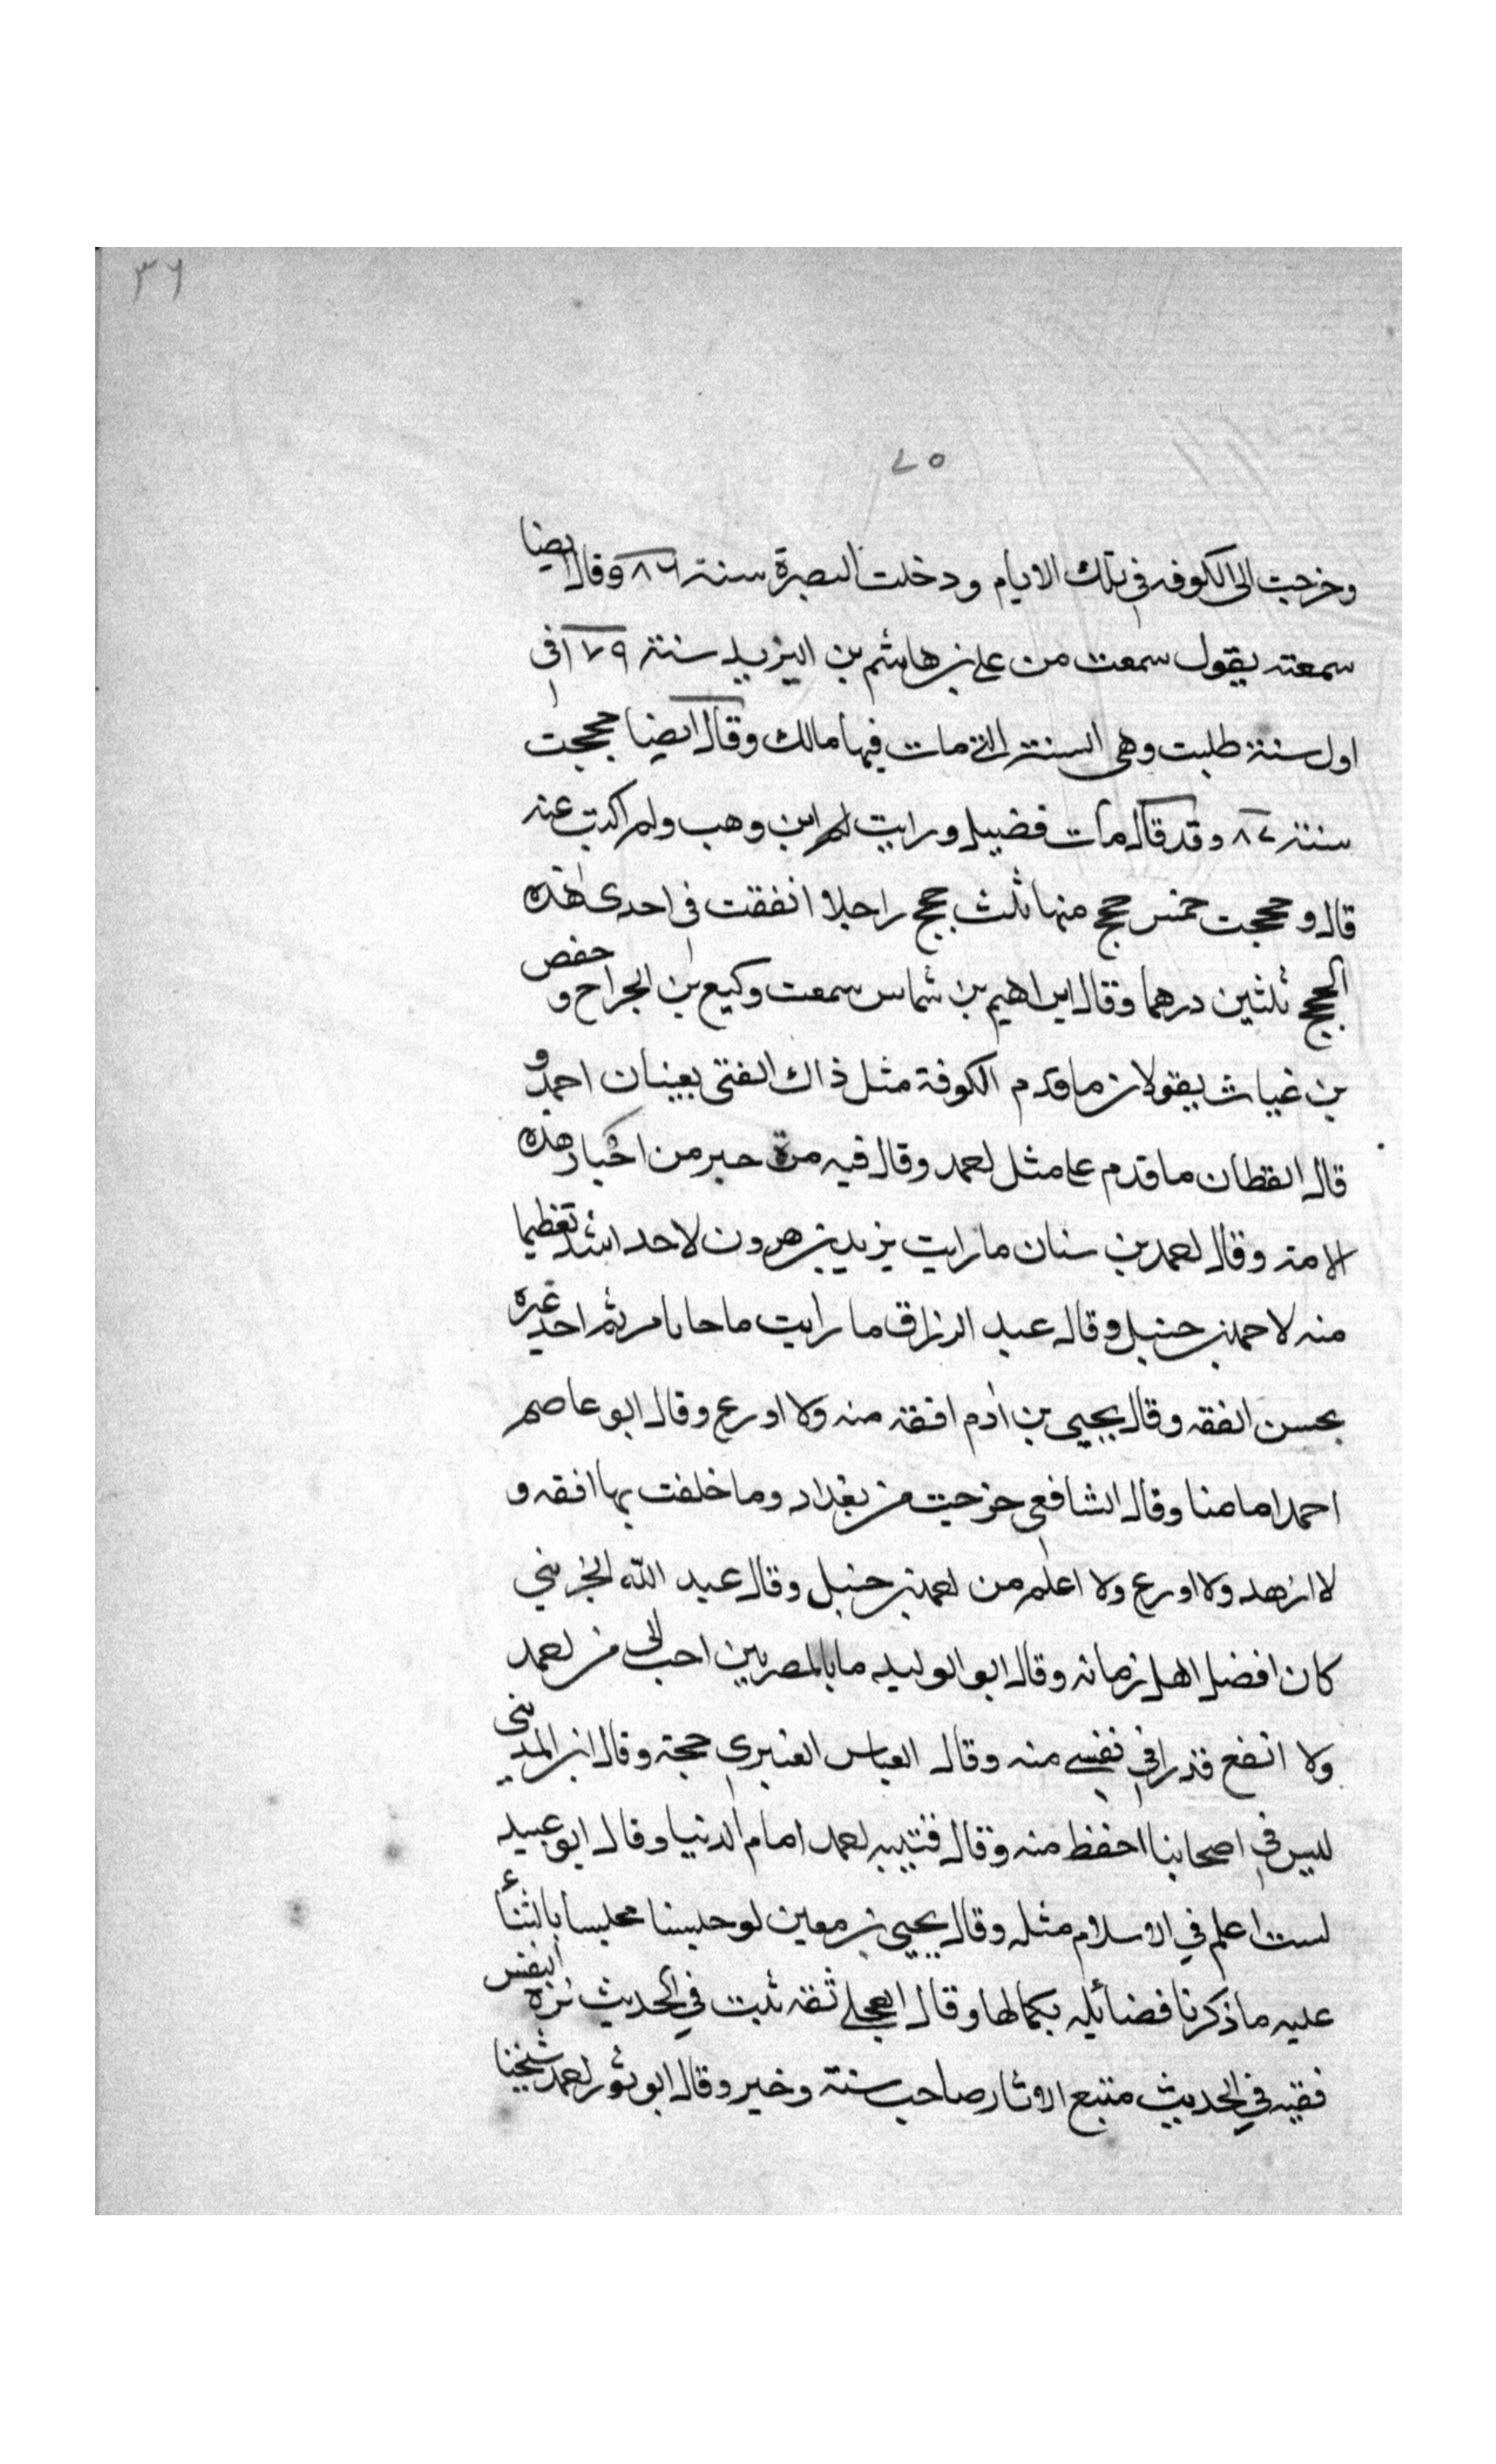 ٣٦
٢٥
وخرجت الى الكوفه في تلك الايام ودخلت البصرة سنة ٨٦ وقال ايضا
سمعته يقول سمعت من علي بن هاشم بن البريد سنة ١٧٩ في
اول سنة طلبت وهي السنة التي مات فيها مالك وقال ايضا حججت
سنة ٨٧ وقد قال مات فضيل ورايت ابن وهب ولم اكتب عنه
قال وحججت خمس حجج منها ثلث حجج راجلا انفقت في احدى هذه
الحجج ثلثين درهما وقال ابراهيم بن شماس سمعت وكيع بن الجراح و حفص
بن غياث يقولان ما قدم الكوفة مثل ذاك الفتى يعنيان احمد و
قال القطان ما قدم علي مثل احمد وقال فيه مرة حبر من احبار هذه
الامة وقال احمد بن سنان ما رايت يزيد بن هرون لاحد اشد تعظيما
منه لاحمد بن حنبل وقال عبد الرزاق ما رايت احد غيره
يحسن الفقه وقال يحيى بن ادم افقه منه ولا اورع وقال ابو عاصم
احمد امامنا وقال الشافعي خرجت من بغداد وما خلفت بها افقه و
لا ازهد ولا اورع ولا اعلم من احمد بن حنبل وقال عبد الله الخريبي
كان افضل اهل زمانه وقال ابو الوليد ما بالمصرين احب الى من احمد
ولا ارفع قدرا في نفسي منه وقال العباس العنبري حجة وقال ابن المديني
ليس في اصحابنا احفظ منه وقال قتيبه احمد امام الدنيا وقال ابو عبيد
لست اعلم في الاسلام مثله وقال يحيى بن معين لو جلسنا مجلسا بالثناء
عليه ما ذكرنا فضائله بكمالها وقال العجلي ثقه ثبت في الحديث نزه النفس
فقيه في الحديث متبع الاثار صاحب سنة وخير وقال ابو ثور احمد شيخنا